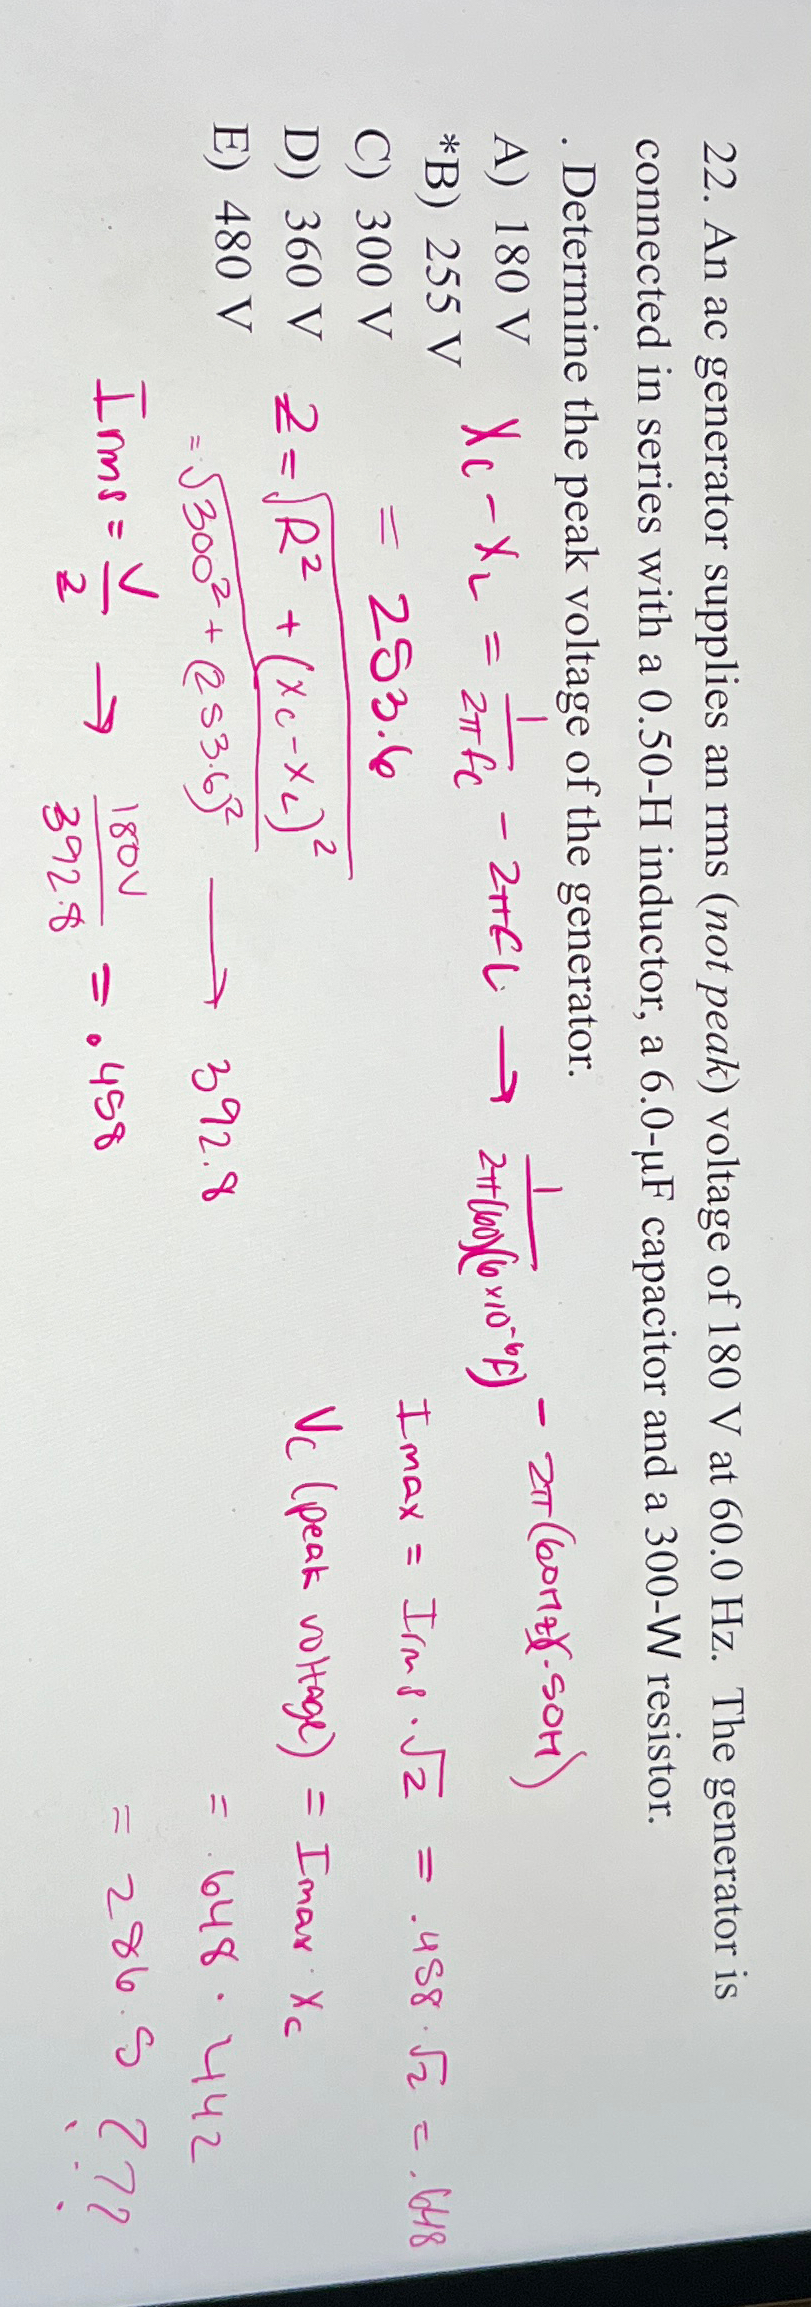 22. An ac generator supplies an rms (not peak) voltage of 180 V at 60.0 Hz. The generator is
connected in series with a 0.50-H inductor, a 6.0-μF capacitor and a 300-W resistor.
. Determine the peak voltage of the generator.
A) 180 V
*B) 255 V
C) 300 V
D) 360 V
E) 480 V
Xc - XL = 1/2πfc - 2πfL → 1/2π(60)(6×10^-6F) - 2π(60Hz)(.50H)
= 253.6
Z = √R² + (Xc-XL)²
= √300² + (253.6)² → 392.8
Irms = V/Z → 180V/392.8 = .458
Imax = Irms · √2 = .458 · √2 = .648
Vc (peak voltage) = Imax · Xc
= .648 · 442
= 286.5 ???